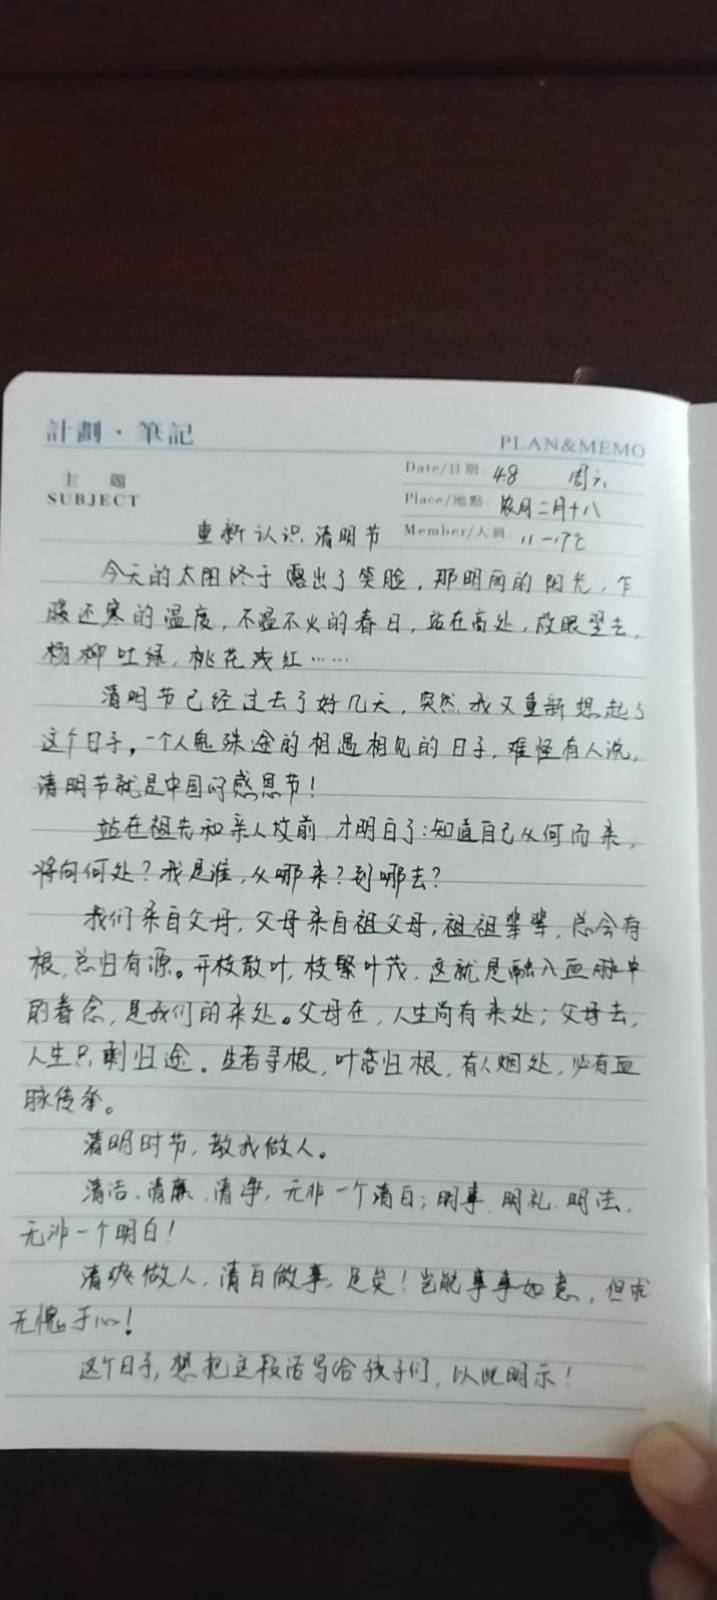 計劃·筆記
PLAN&MEMO
主 題
SUBJECT
Date/日期: 4.8 周六
Place/地點: 农月二月十八
Member/人員: 11-17℃
重新认识清明节
今天的太阳终于露出了笑脸，那明丽的阳光，乍
暖还寒的温度，不温不火的春日，站在高处，放眼望去，
杨柳吐绿，桃花浅红……
清明节已经过去了好几天，突然我又重新想起了
这个日子，一个人鬼殊途的相遇相见的日子，难怪有人说，
清明节就是中国的感恩节！
站在祖先和亲人坟前，才明白了：知道自己从何而来，
将向何处？我是谁，从哪来？到哪去？
我们来自父母，父母来自祖父母，祖祖辈辈，总会有
根，总归有源。开枝散叶，枝繁叶茂，这就是融入血脉中
的眷念，是我们的来处。父母在，人生尚有来处；父母去，
人生只剩归途。生者寻根，叶落归根，有人烟处，必有血
脉传承。
清明时节，教我做人。
清洁、清廉、清净，无非一个清白；明事、明礼、明法，
无非一个明白！
清爽做人，清白做事，足矣！岂能事事如意，但求
无愧于心！
这个日子，想把这段话写给孩子们，以此明示！